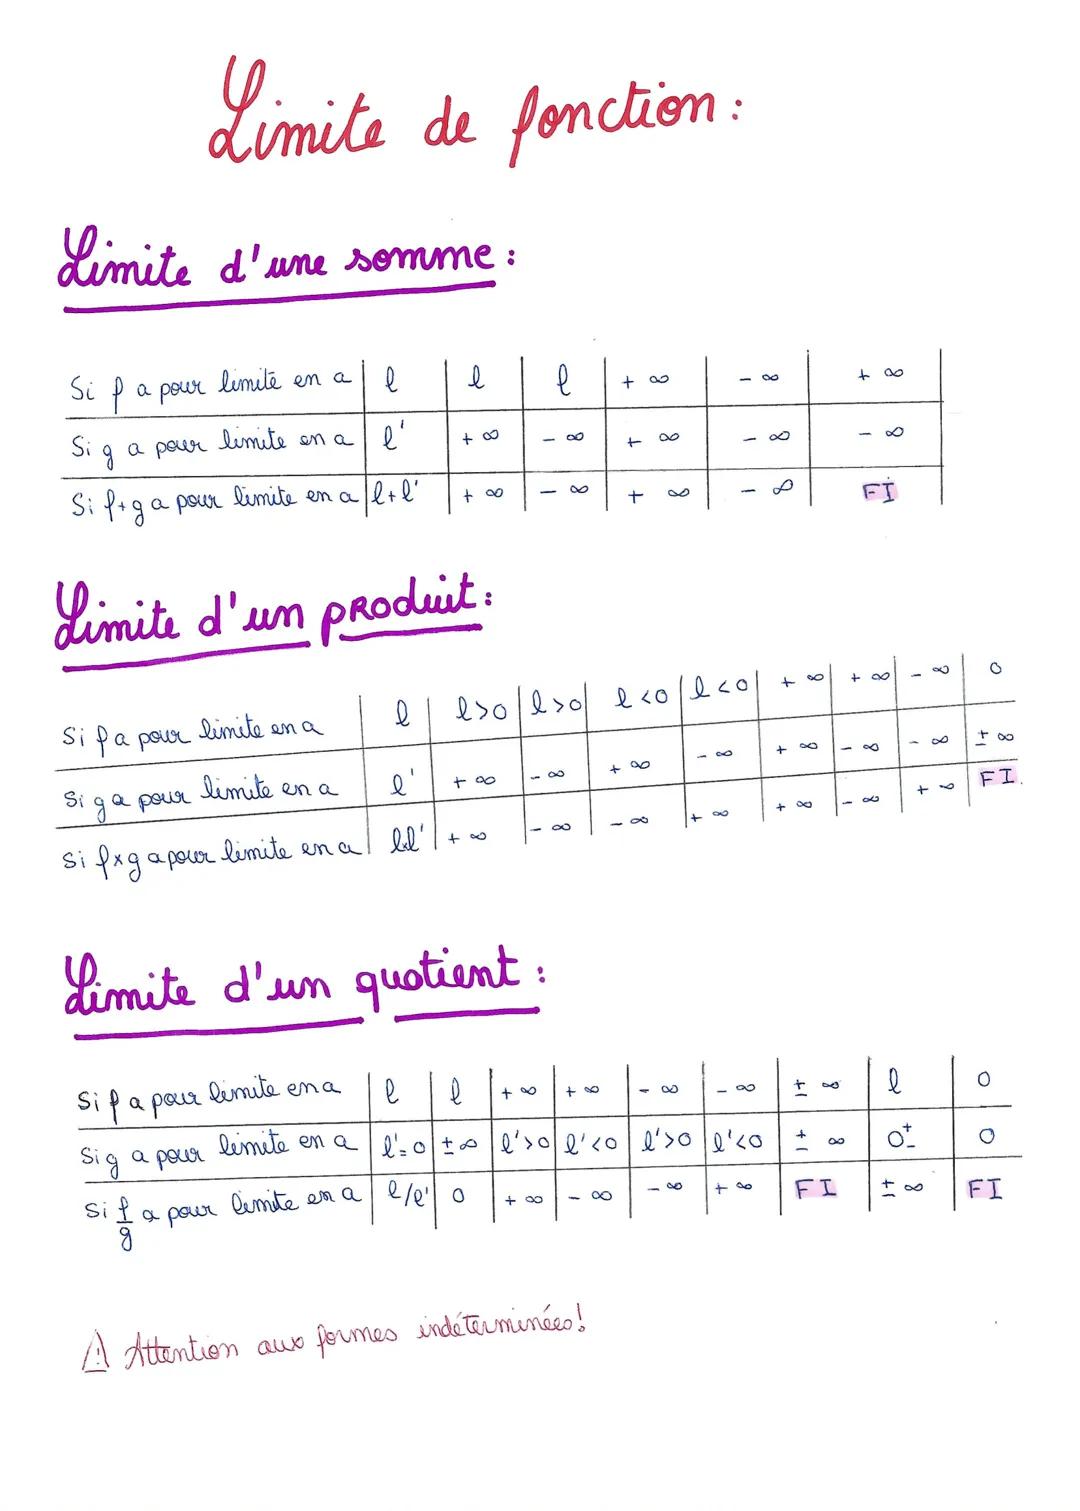 Limite de fonction:
Limite d'une somme :
Si f a pour limite en a | l | l | l | + ∞ | - ∞ | + ∞
Si g a pour limite en a | l' | + ∞ | - ∞ | + ∞ | - ∞ | - ∞
Si f+g a pour limite en a | l+l' | + ∞ | - ∞ | + ∞ | - ∞ | FI
Limite d'un produit :
Si f a pour limite en a | l | l>0 | l>0 | l<0 | l<0 | + ∞ | + ∞ | - ∞ | 0
Si g a pour limite en a | l' | + ∞ | - ∞ | + ∞ | - ∞ | + ∞ | - ∞ | - ∞ | ± ∞
Si f×g a pour limite en a | l.l' | + ∞ | - ∞ | - ∞ | + ∞ | + ∞ | - ∞ | + ∞ | FI.
Limite d'un quotient :
Si f a pour limite en a | l | l | + ∞ | + ∞ | - ∞ | - ∞ | ± ∞ | l | 0
Si g a pour limite en a | l'=0 | ±∞ | l'>0 | l'<0 | l'>0 | l'<0 | ± ∞ | 0± | 0
Si f/g a pour limite en a | l/l' | 0 | + ∞ | - ∞ | - ∞ | + ∞ | FI | ± ∞ | FI
⚠ Attention aux formes indéterminées!